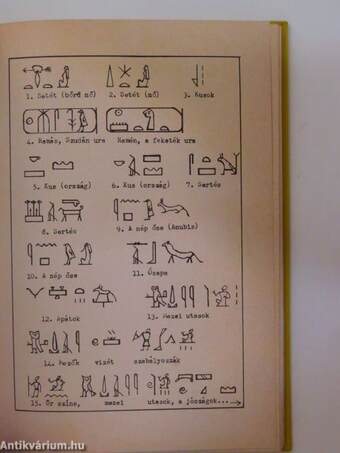 1. Setét (bőrű nő) 2. Setét (nő) 3. Kusok
4. Hemés, Szudán ura Hemén, a feketék ura
5. Kus (ország) 6. Kus (ország) 7. Sertés
8. Sertés 9. A nép őse (Anubis)
10. A nép őse 11. Őzapa
12. Apátok 13. Mezei utasok
14. Mezők vizét szabályozzák
15. Őr színe, mezei utasok, a jószágok...
Antikvárium.hu
Antikvárium.hu